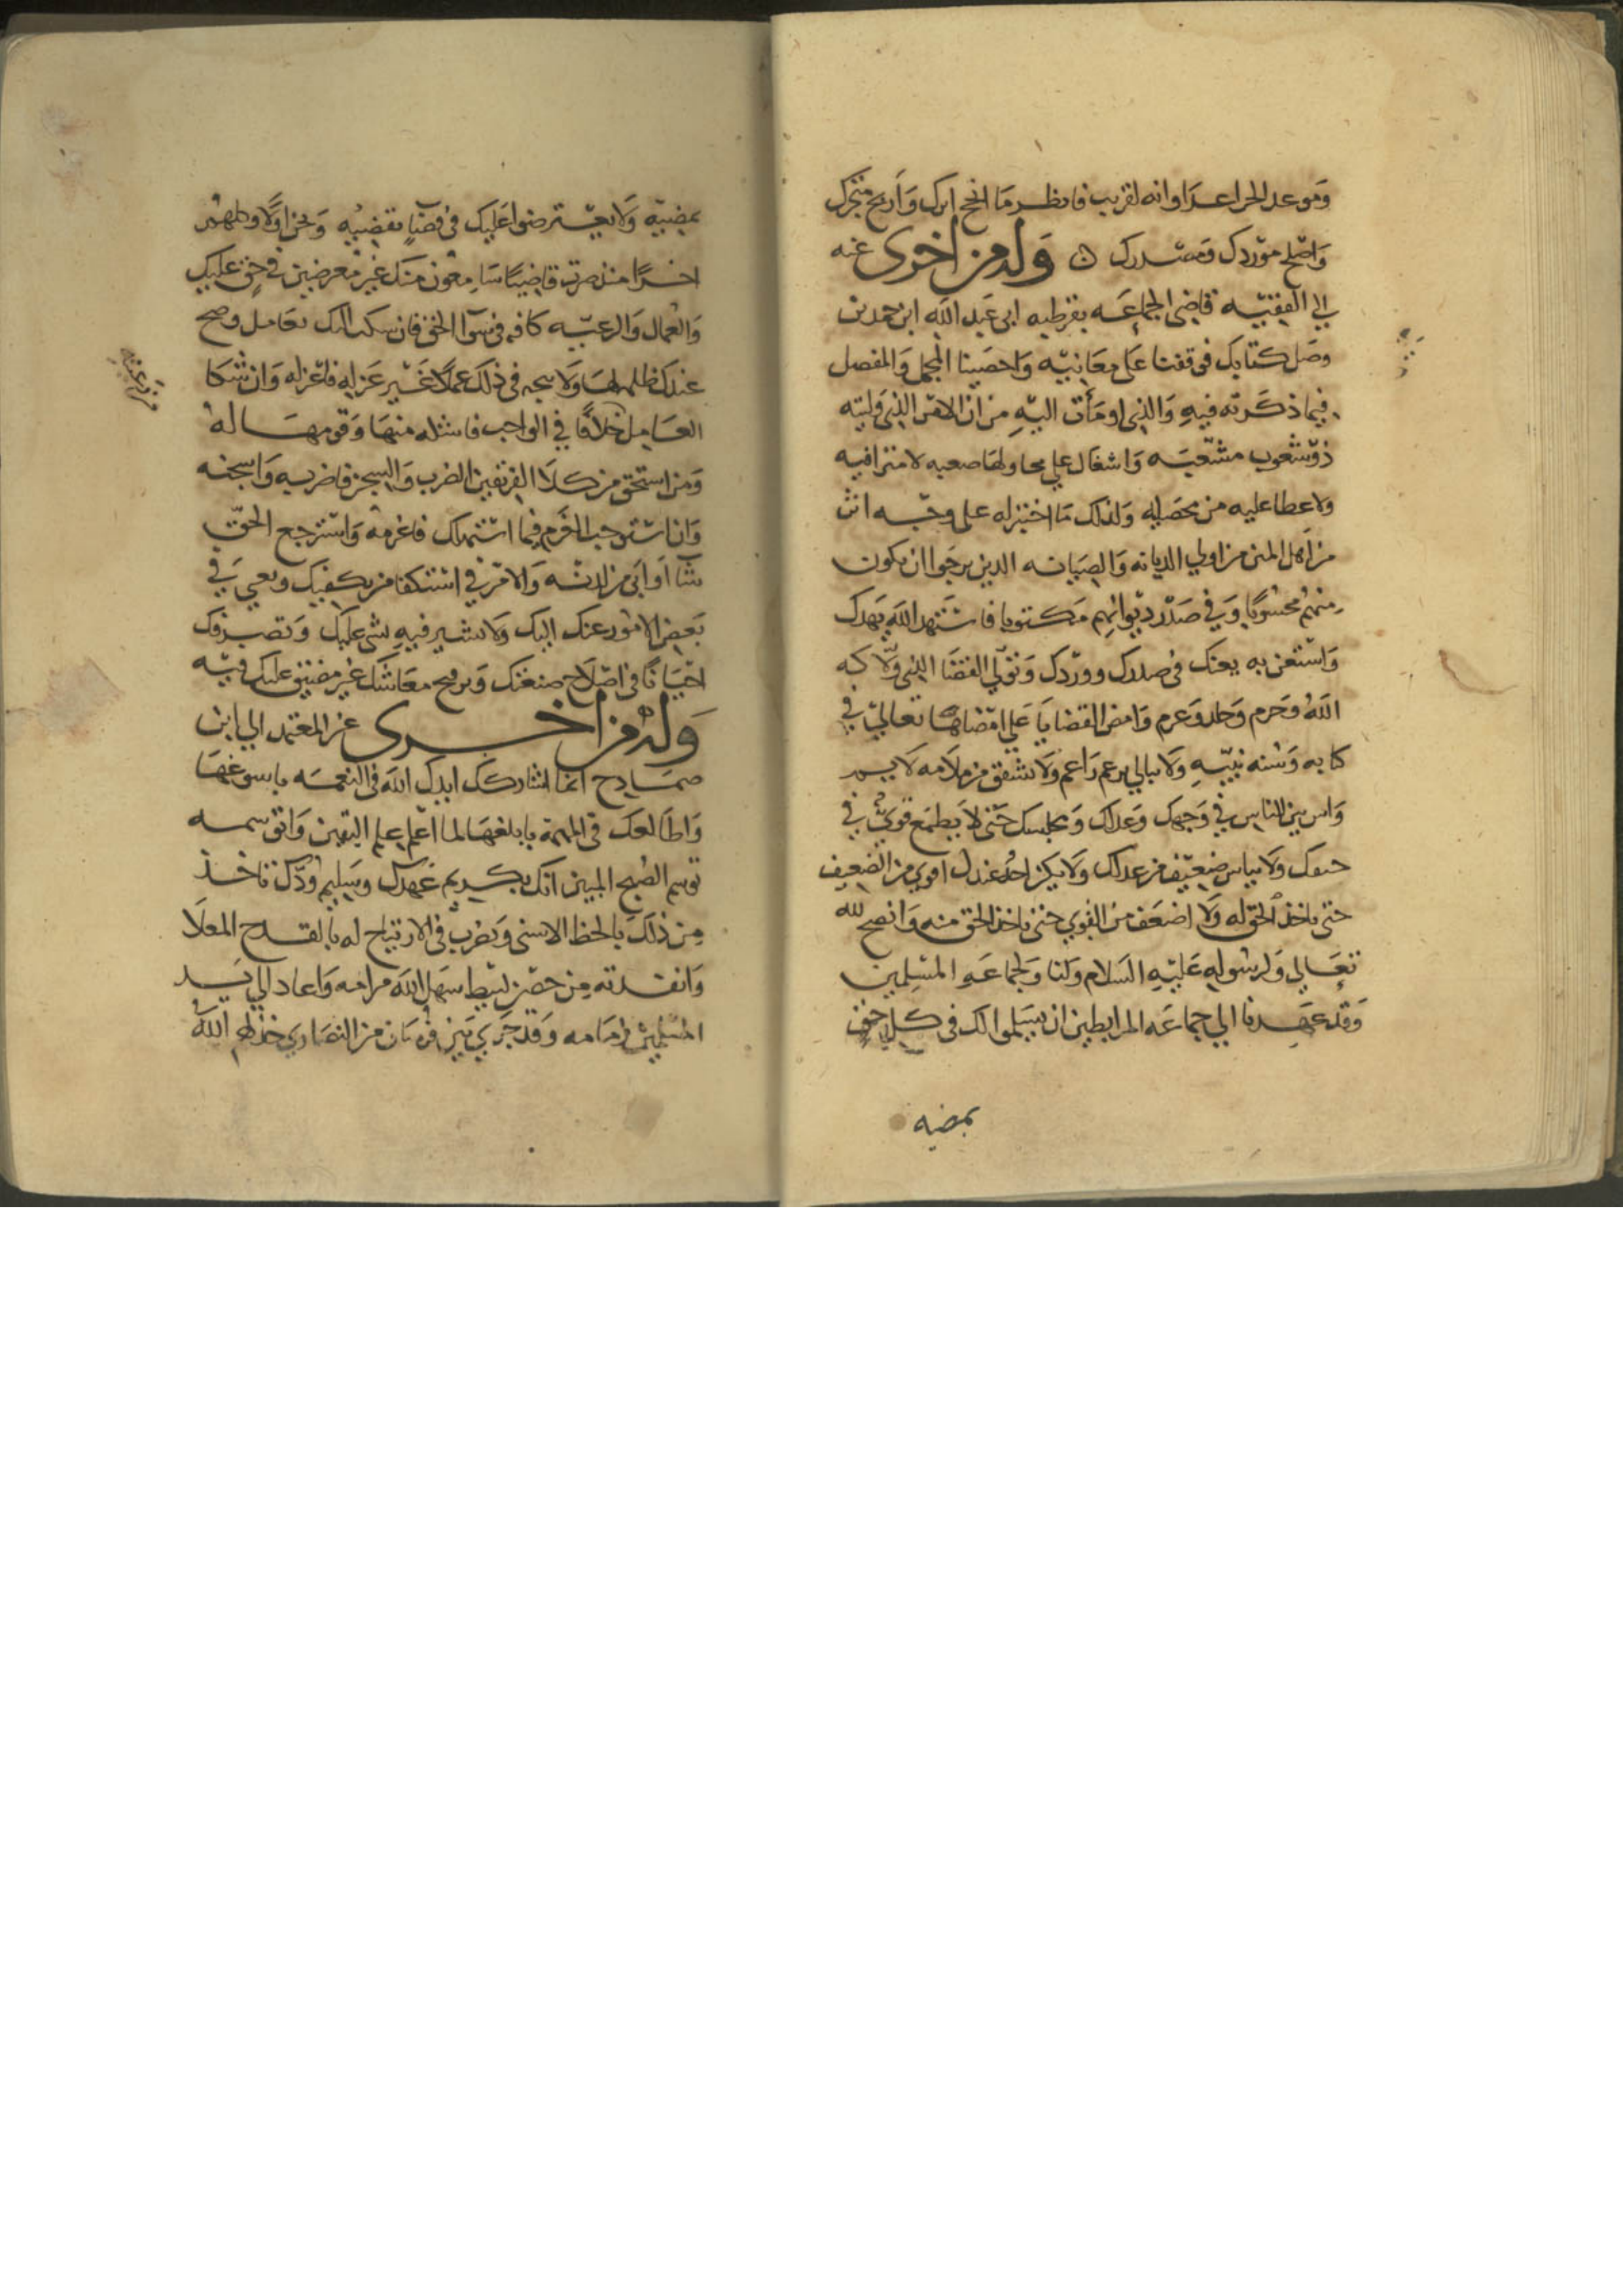 وموعد الجزاء غدا وانه لقريب فانظر ما انجح اثرك واربح متجرك
واصلح موردك ومصدرك ۞ وله من اخرى عنه
الى الفقيه قاضي الجماعه بقرطبه ابى عبد الله ابن حمدين
وصل كتابك فوقفنا على معانيه واحصينا المجمل والمفصل
فيما ذكرته فيه والذي اومأت اليه من ان الامر الذي وليته
ذو شعوب متشعبه واشغال على محاولها صعبه لامترا فيه
ولا عطا عليه من محصليه ولذلك ما اختير له على وجه
من اهل المنن من اولي الديانه والصيانه الذين يرجوا ان يكون
منهم محسوبا وفي صدر ديوانهم مكتوبا فاستهد الله يهدك
واستعن به يعنك في صدرك ووردك وتولى القضا الذي ولاكه
الله وحزم وجلد وعزم وامض القضايا على امضاها تعالى في
كتابه وسنه نبيه ولا تبالي برغم راغم ولا تشفق من ملامه لايم
واس بين الناس في وجهك وعدلك ومجلسك حتى لا يطمع قوي في
حيفك ولا ييأس ضعيف من عدلك ولا يكن احد عندك اقوى من الضعيف
حتى تاخذ الحق له ولا اضعف من القوي حتى تاخذ الحق منه وانصح لله
تعالى ولرسوله عليه السلام ولنا ولجماعه المسلمين
وقد عهدنا الى جماعه المرابطين ان يسلموا لك في كل حق
تمضيه
تمضيه ولا يعترضوا عليك في قضا تقضيه ونحن اولا وكلهم
اخرا منذ صرت قاضيا سامعون منك غير معترضين في حق عليك
والعمال والرعيه كافه في سوا الحق فان شكت اليك بعامل وصح
عندك ظلمه لها ولا يتجه في ذلك عملا غير عزله فاعزله وان شكا
العامل خلافا في الواجب فاشكه منها وقومها له
ومن استحق من كلا الفريقين الضرب والسجن فاضربه واسجنه
وان استوجب الغرم فيما استهلك فاغرمه واسترجع الحق
شا او ابى من لدنه والامر في استكفا من يكفيك ويعي في
بعض الامور عنك اليك ولا نشير فيه بشى عليك وتصرفك
احيانا في اصلاح صنعتك وترقيح معاشك غير مضيق عليك فيه
وله من اخرى عن المعتمد الى ابن
صمادح انما اشاركك ايدك الله في النعمه باسوغها
واطالعك في المهمة بابلغها لما اعلم علم اليقين واتوسمه
توسم الصبح المبين انك بكريم عهدك وسليم ودك تاخذ
من ذلك بالحظ الاسنى وتضرب في الارتياح له بالقدح المعلا
وانفدته من حصن لييط سهل الله مرامه واعاد الى يد
المسلمين زمامه وقد جرى بين فرسان من النصارى خذلهم الله